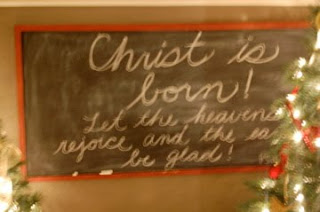 Christ is
born!
Let the heavens
rejoice and the ea
be glad!